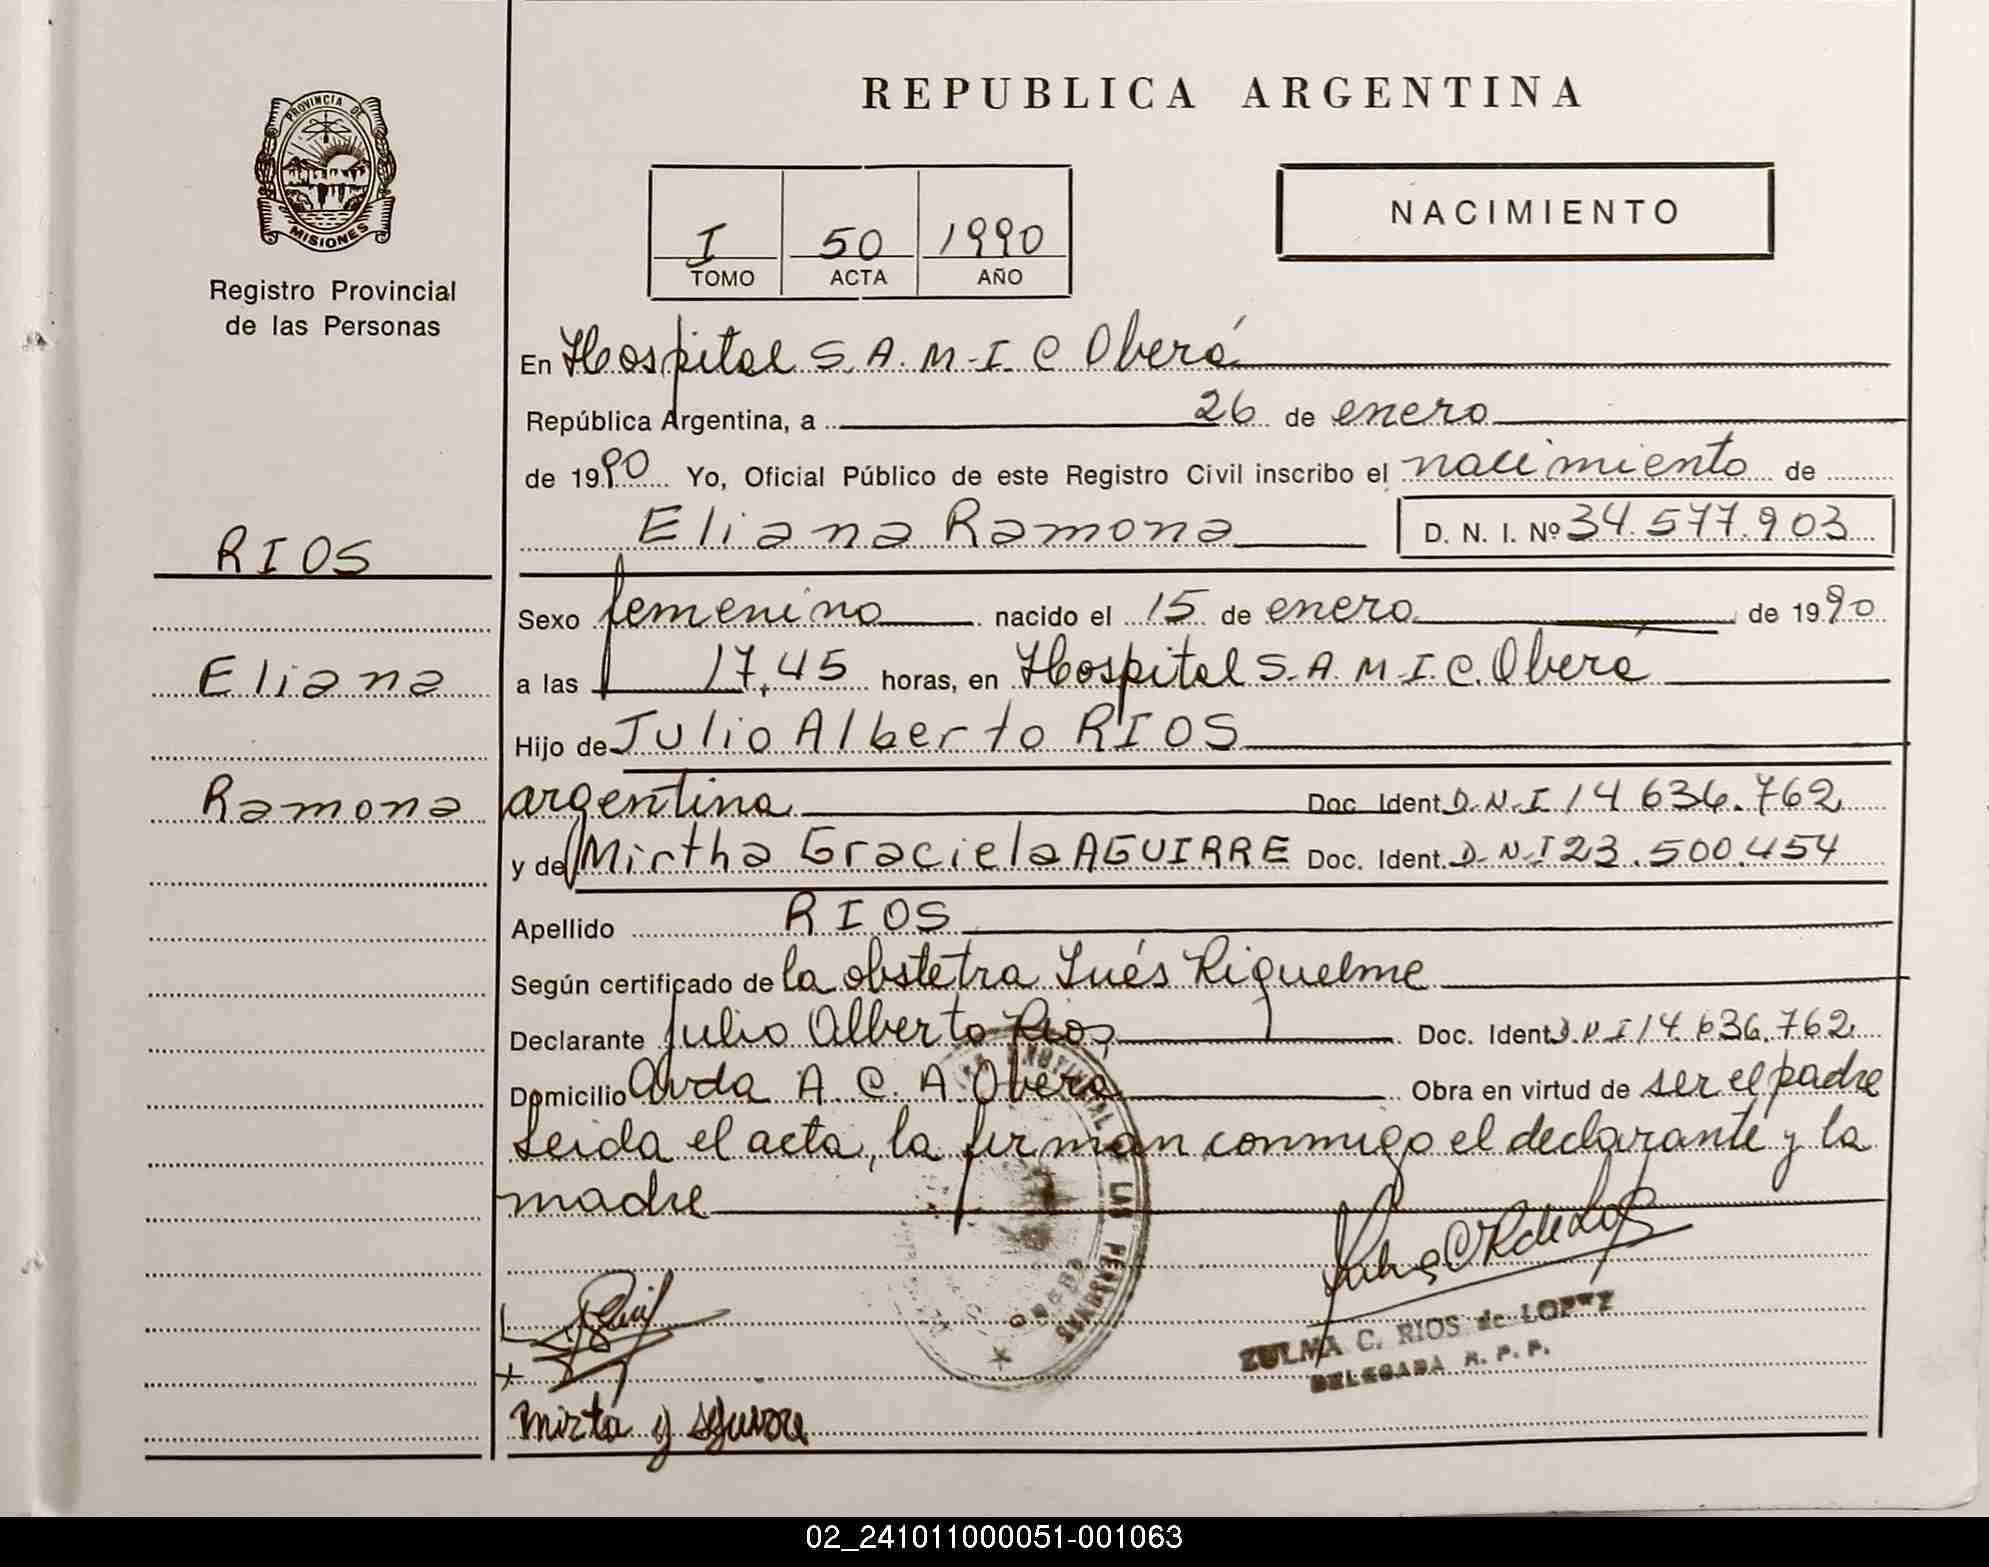 REPUBLICA ARGENTINA
PROVINCIA DE
MISIONES
Registro Provincial
de las Personas
NACIMIENTO
I 50 1990
TOMO ACTA AÑO
En Hospital S.A.M.I.C Oberá
República Argentina, a 26 de enero
de 1990 Yo, Oficial Público de este Registro Civil inscribo el nacimiento de
Eliana Ramona D. N. I. Nº 34.577.903
RIOS
Sexo femenino nacido el 15 de enero de 1990
Eliana
a las 17,45 horas, en Hospital S.A.M.I.C. Oberá
Hijo de Julio Alberto RIOS
Ramona
argentina Doc. Ident. D.N.I 14.636.762
y de Mirtha Graciela AGUIRRE Doc. Ident. D.N.I 23.500.454
Apellido RIOS
Según certificado de la obstetra Inés Riquelme
Declarante Julio Alberto Rios Doc. Ident. D.N.I 14.636.762
Domicilio Avda A.C.A Oberá Obra en virtud de ser el padre
Leida el acta, la firman conmigo el declarante y la
madre
LAS PERSONAS
ZULMA C. RIOS de LOPEZ
DELEGADA R. P. P.
Mirta
02_241011000051-001063